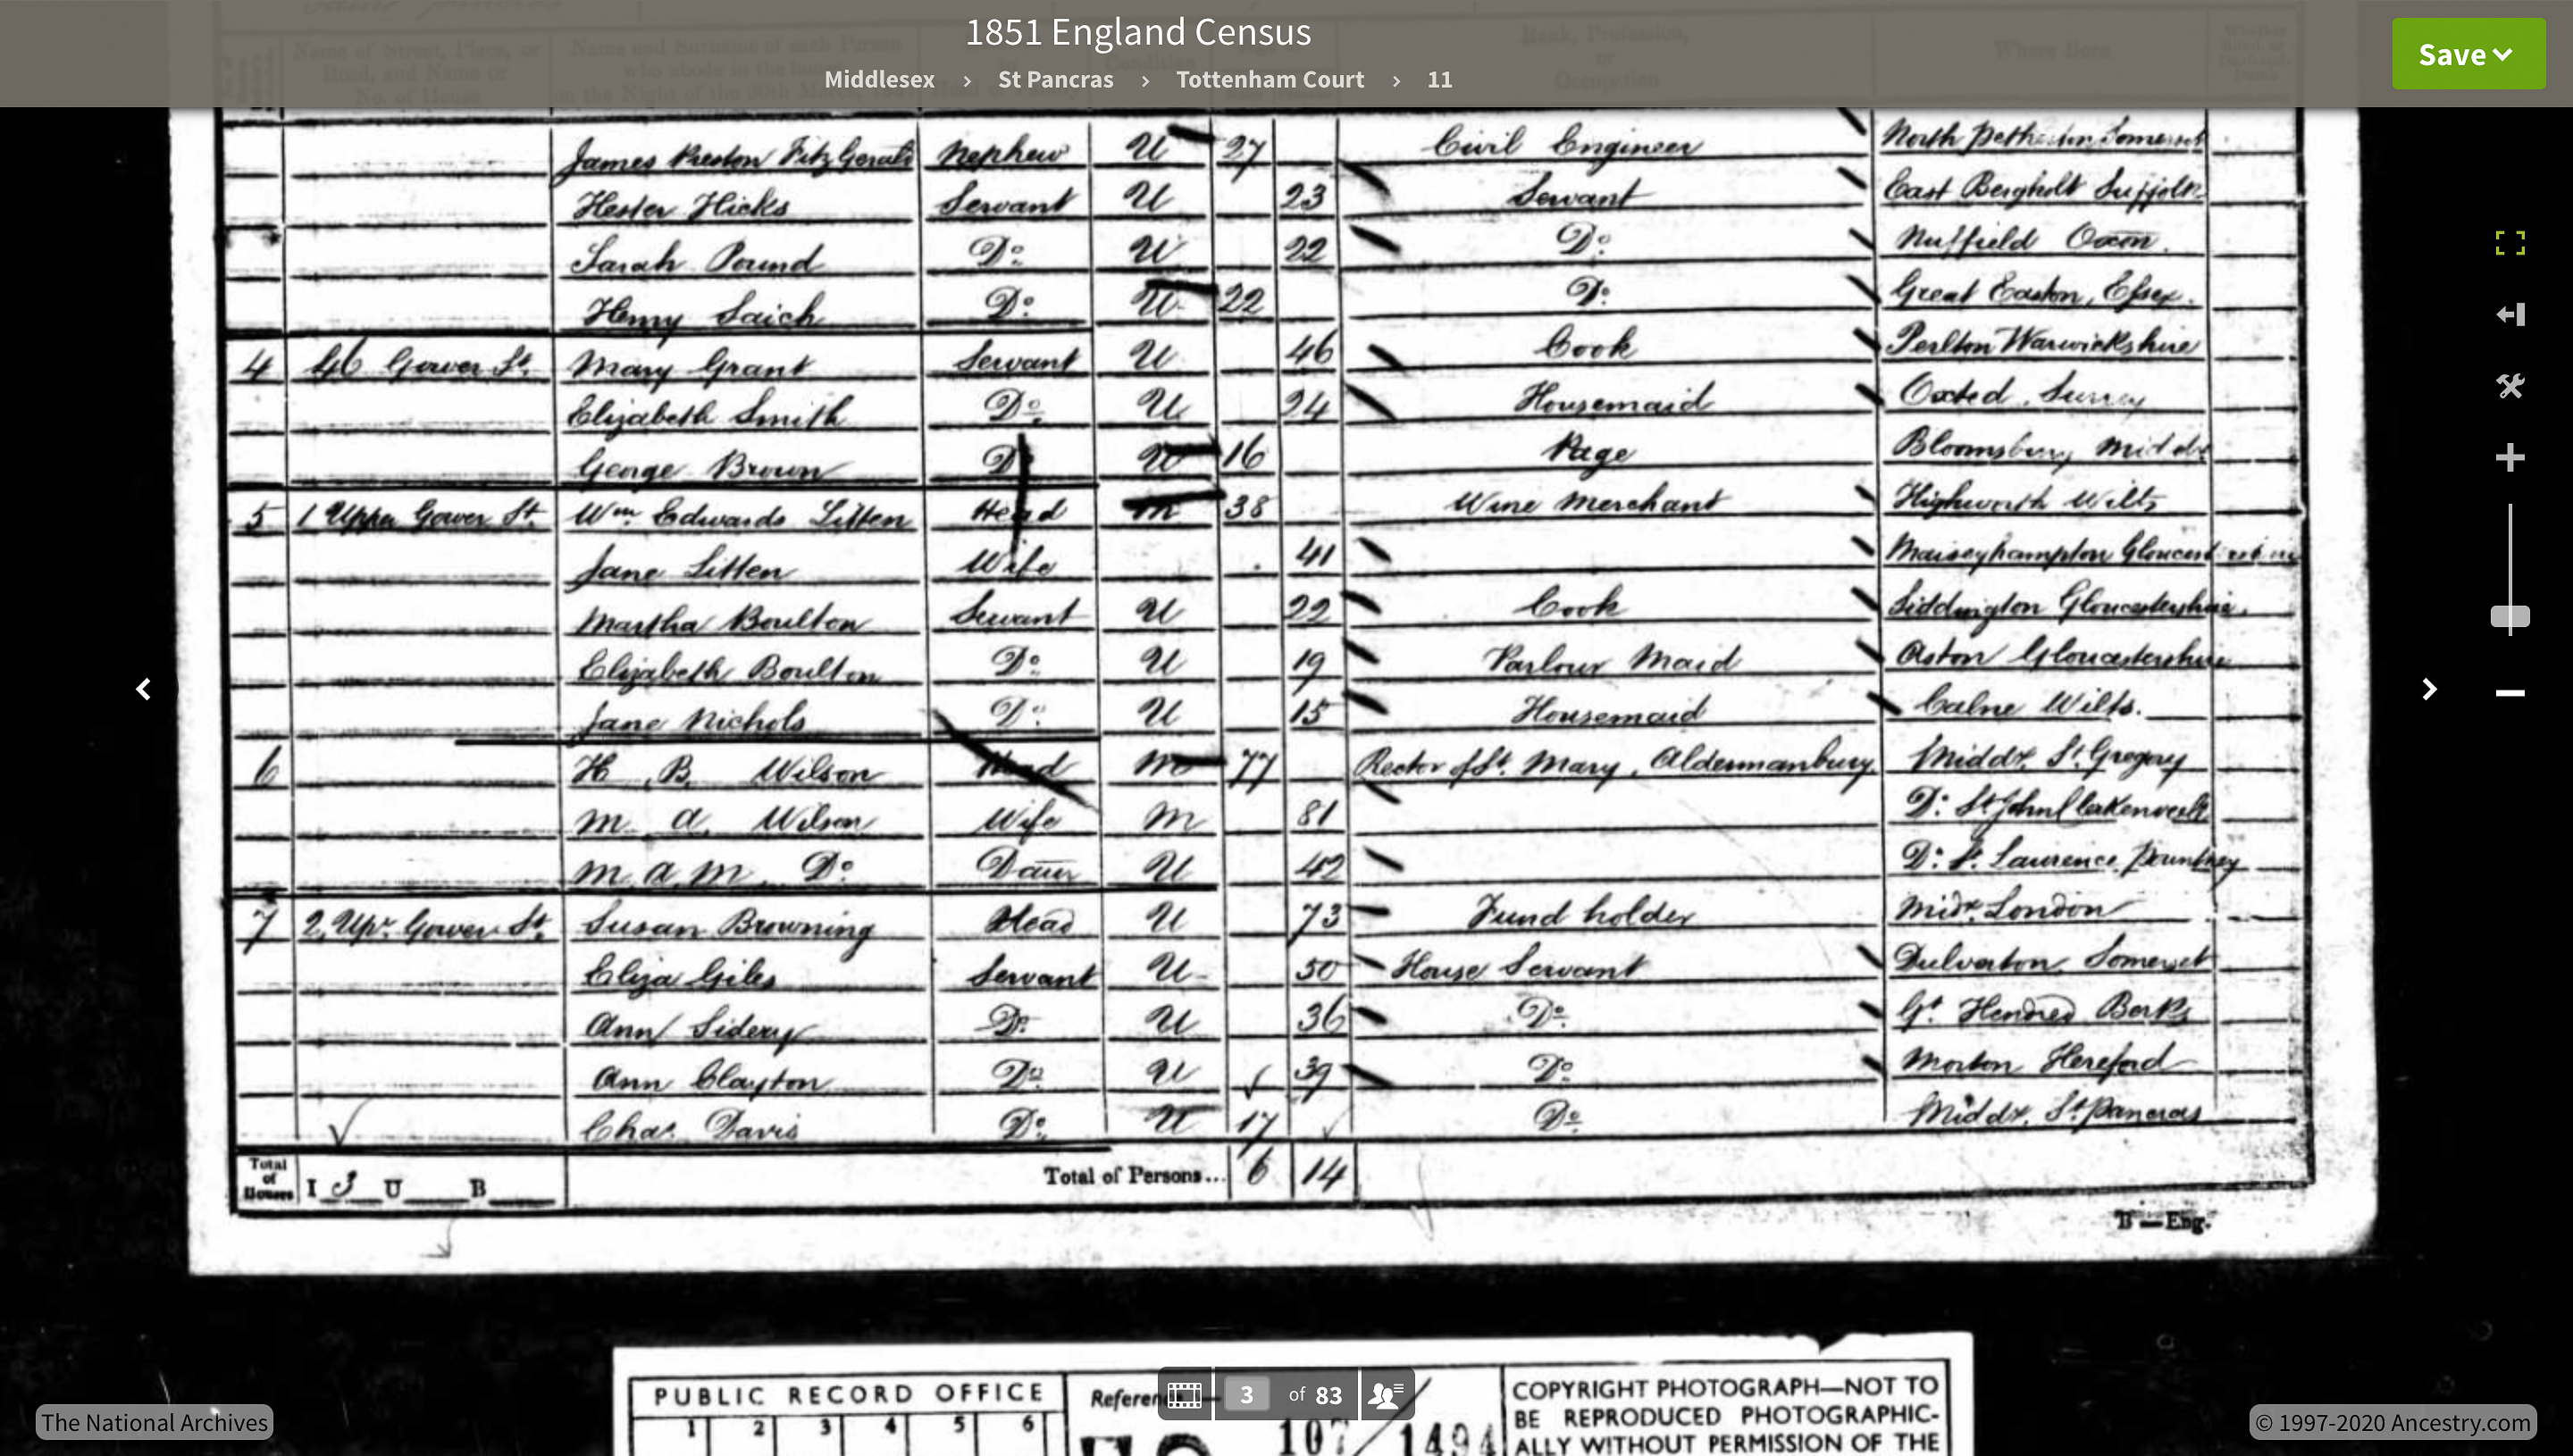 1851 England Census
Save
Middlesex › St Pancras › Tottenham Court › 11
Name of Street, Place, or Road, and Name or No. of House
Name and Surname of each Person who abode in the house, on the Night of the 30th March,
Condition
Rank, Profession, or Occupation
Where Born
James Preston FitzGerald Nephew U 27 Civil Engineer North Petherton Somerset
Hester Hicks Servant U 23 Servant East Bergholt Suffolk
Sarah Pound Do U 22 Do Nuffield Oxon.
Henry Saich Do U 22 Do Great Easton, Essex.
4 46 Gower St. Mary Grant Servant U 46 Cook Warwickshire
Elizabeth Smith Do U 24 Housemaid Oxted, Surrey
George Brown D U 16 Page Bloomsbury Middx
5 1 Upper Gower St. Wm Edwards Litten Head M 38 Wine Merchant Highworth Wilts
Jane Litten Wife 41 Maiseyhampton Gloucestershire
Martha Boulton Servant U 22 Cook Siddington Gloucestershire.
Elizabeth Boulton Do U 19 Parlour Maid Aston Gloucestershire
Jane Nichols Do U 15 Housemaid Calne Wilts.
6 H. B. Wilson Head M 77 Rector of St. Mary, Aldermanbury. Middx. St. Gregory
M A Wilson Wife M 81 Do St John Clerkenwell
M. A. M. Do Daur U 42 Do St. Laurence Pountney
7 2, Upr. Gower St. Susan Browning Head U 73 Fund holder Midx. London
Eliza Giles Servant U 50 House Servant Dulverton Somerset
Ann Sidery Do U 36 Do Gt. Hendred Berks
Ann Clayton Do U 39 Do Morton Hereford
Chas. Davis Do U 17 Do Middx. St. Pancras
Total of Houses I 3 U B Total of Persons... 6 14
B—Eng.
PUBLIC RECORD OFFICE
1 2 3 4 5 6
Reference
107/1494
3 of 83
COPYRIGHT PHOTOGRAPH—NOT TO
BE REPRODUCED PHOTOGRAPHIC-
ALLY WITHOUT PERMISSION OF THE
The National Archives
© 1997-2020 Ancestry.com